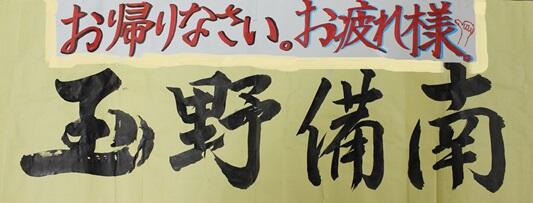 お帰りなさい。お疲れ様。
玉野備南